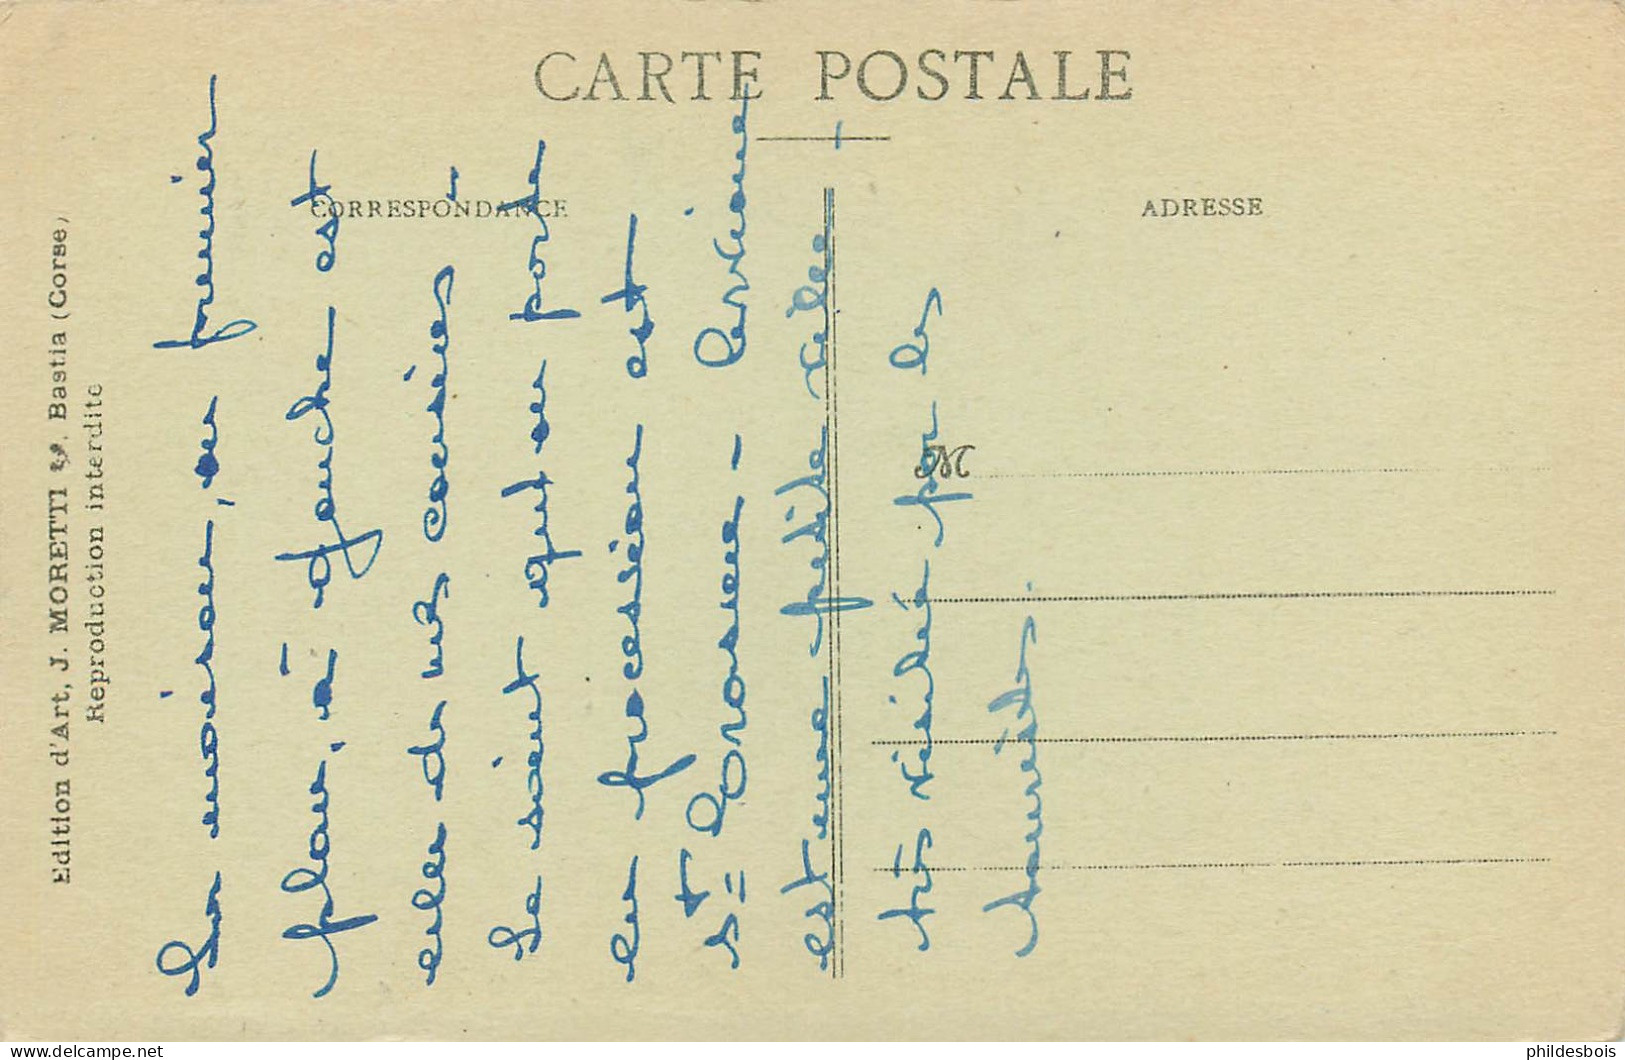 CARTE POSTALE
CORRESPONDANCE
ADRESSE
Edition d'Art, J. MORETTI, Bastia (Corse)
Reproduction interdite
M
La maison, au premier
plan, à gauche est
celle de nos cousines
Le saint qu'on porte
en procession est
St Erasme - Cervione
est une petite ville
très visitée par les
touristes.
delcampe.net
phildesbois